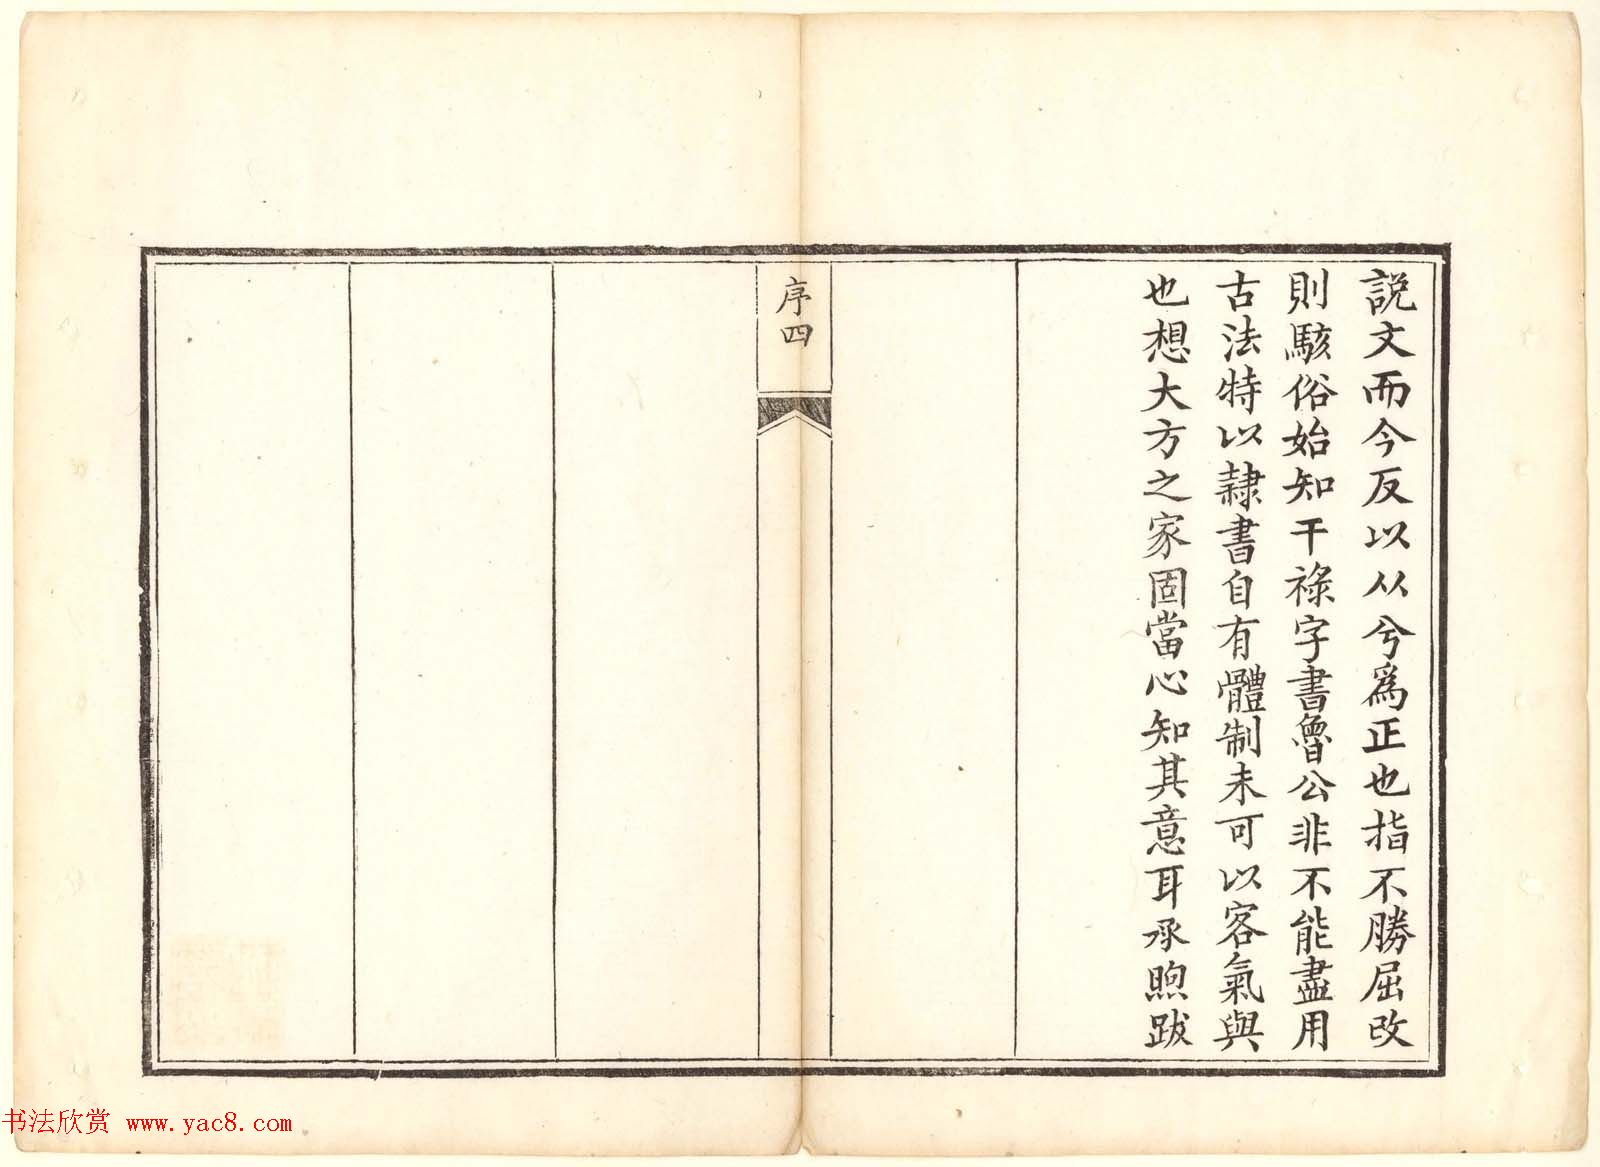 説文而今反以从兮爲正也指不勝屈改
則駭俗始知干祿字書魯公非不能盡用
古法特以隸書自有體制未可以客氣與
也想大方之家固當心知其意耳承煦跋
序四
书法欣赏 www.yac8.com